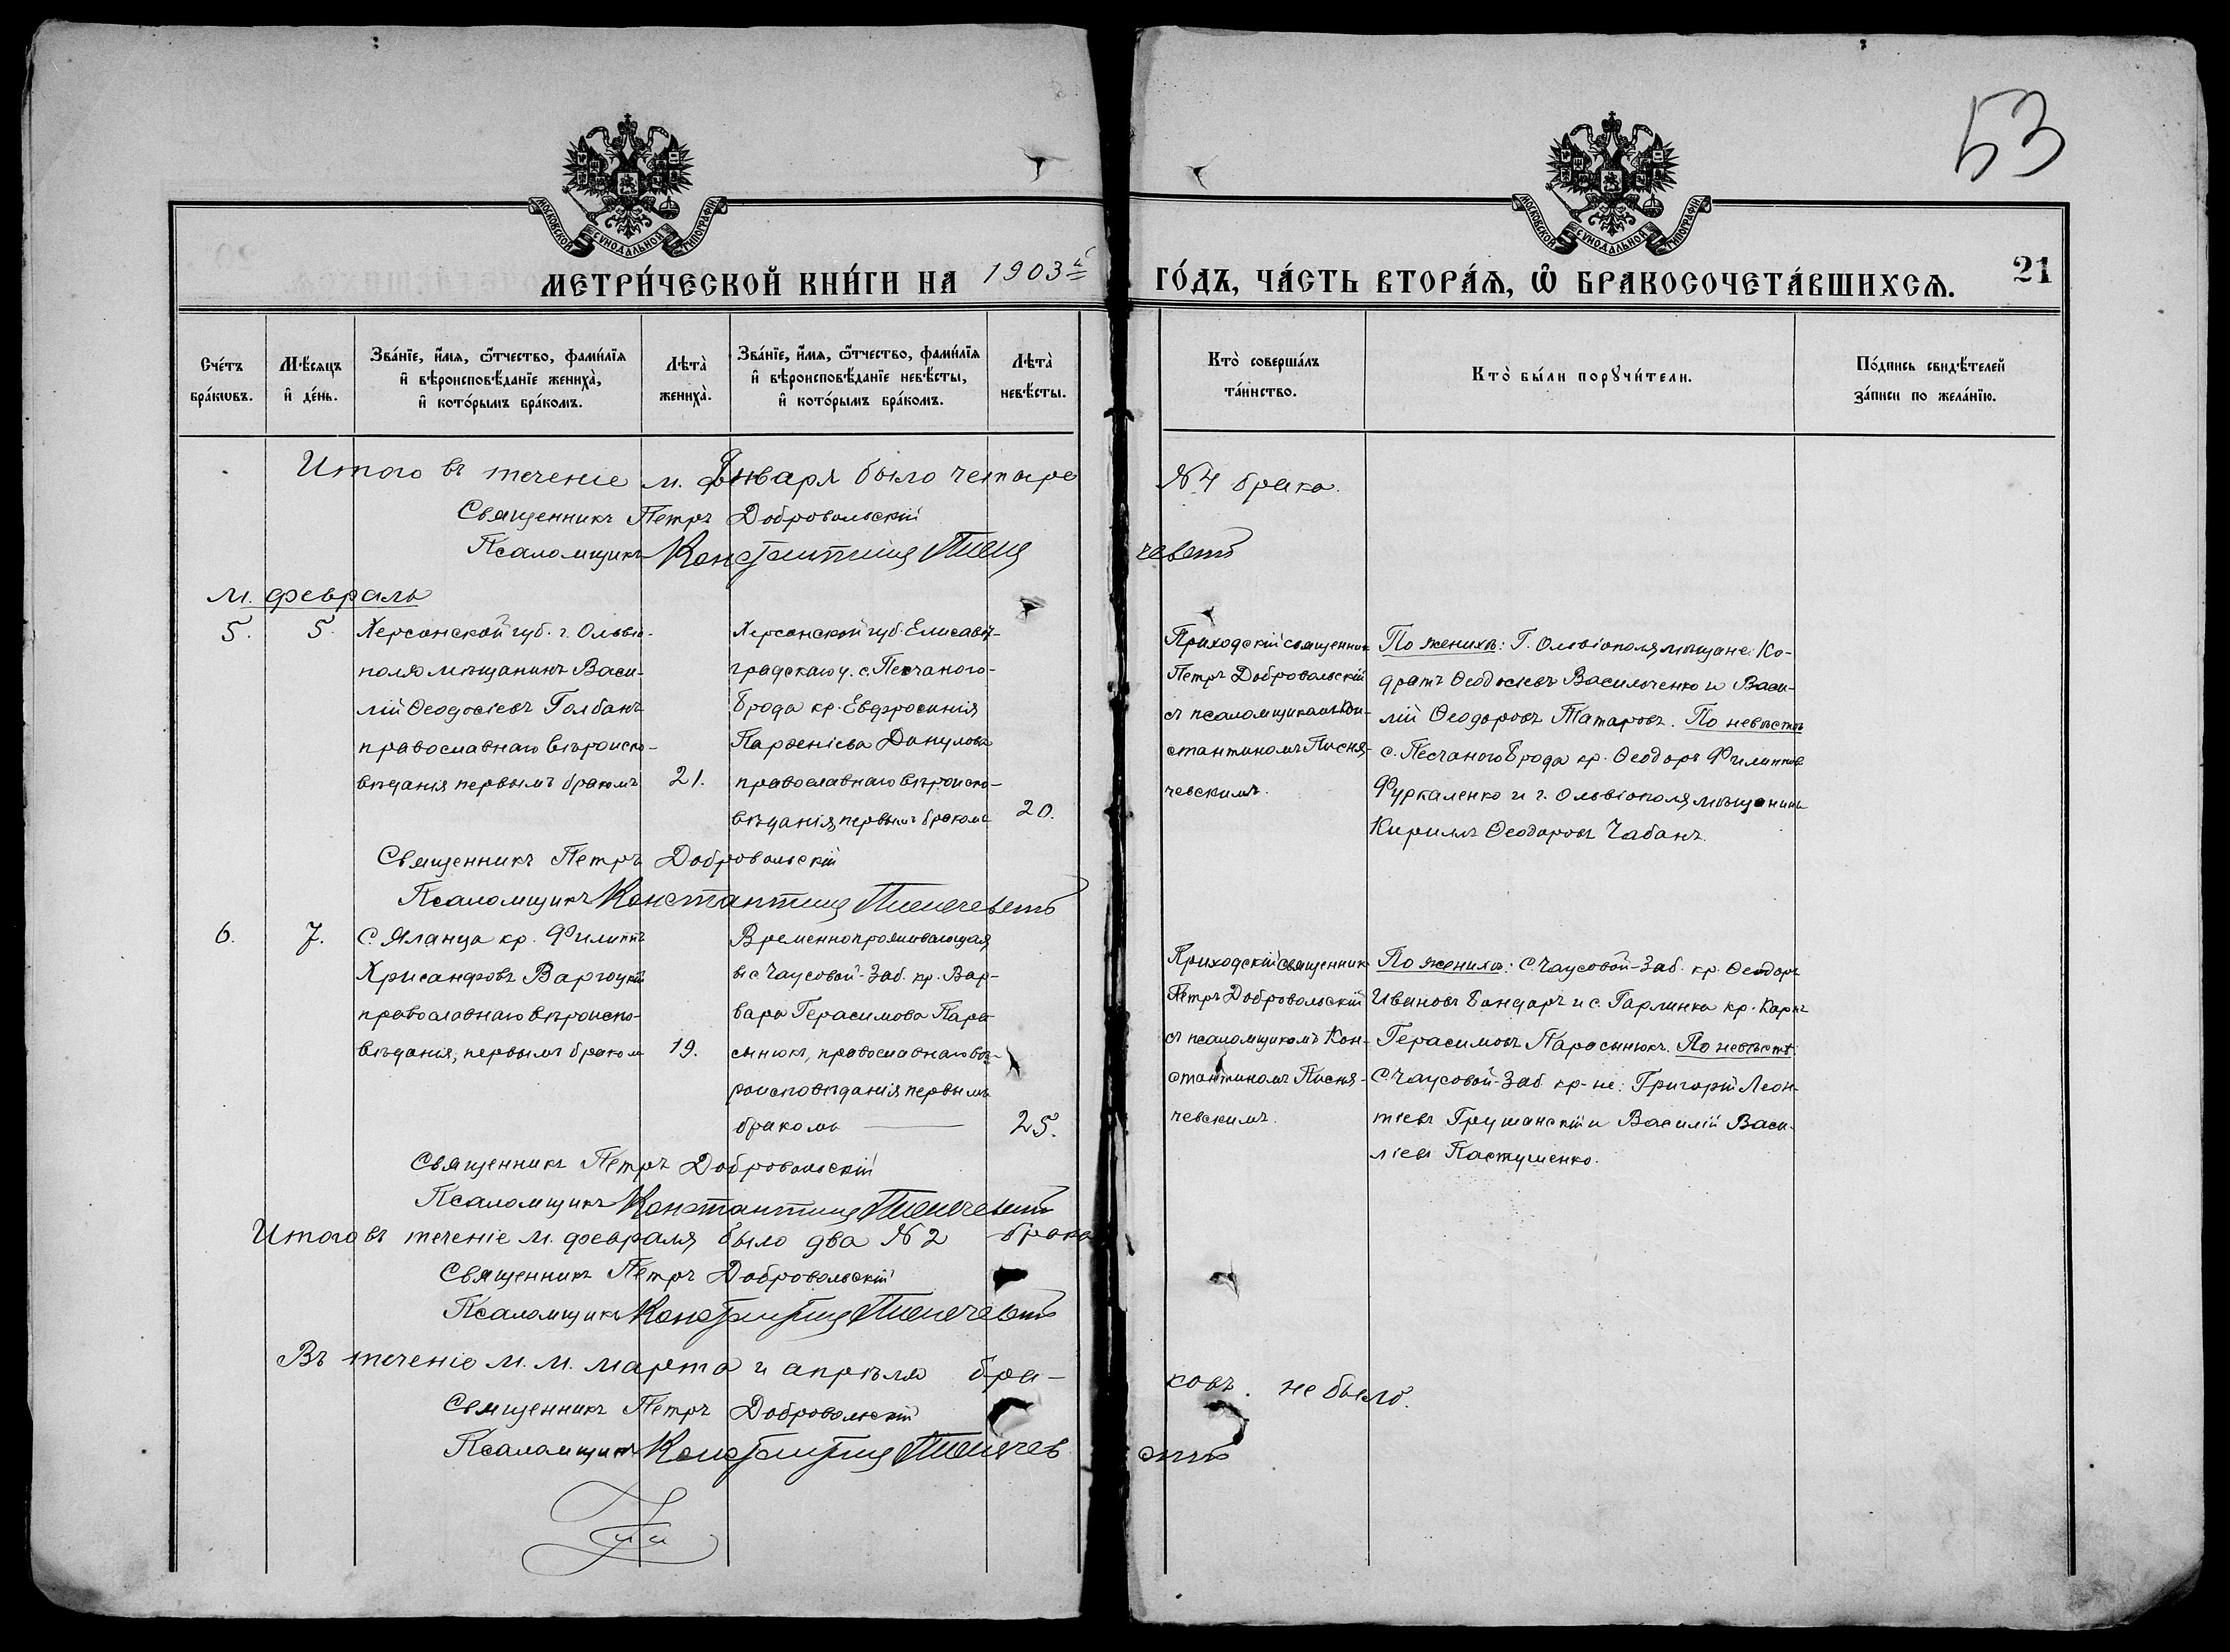 53
МОСКОВСКОЙ СУНОДАЛЬНОЙ ТИПОГРАФІИ
МОСКОВСКОЙ СУНОДАЛЬНОЙ ТИПОГРАФІИ
МЕТРИ́ЧЕСКОЙ КНИ́ГИ НА 1903й
ГО́ДЪ, ЧА́СТЬ ВТОРА́Ѧ, Ѡ҆ БРАКОСОЧЕТА́ВШИХСѦ.
21
Сче́тъ
бра́кѡвъ.
Мѣ́сяцъ
и҆ де́нь.
Зва́нїе, и҆́мѧ, ѻ҆́тчество, фами́лїѧ
и҆ вѣроисповѣ́данїе жениха̀,
и҆ кото́рымъ бра́комъ.
Лѣта̀
жениха̀.
Зва́нїе, и҆́мѧ, ѻ҆́тчество, фами́лїѧ
и҆ вѣроисповѣ́данїе невѣ́сты,
и҆ кото́рымъ бра́комъ.
Лѣта̀
невѣ́сты.
Кто̀ соверша́лъ
та́инство.
Кто̀ бы́ли порꙋчи́тели.
По́дпись свидѣ́телей
за́писи по жела́нїю.
Итого въ теченіе м. Января было четыре
№ 4 брака.
Священникъ Петръ Добровольскій
Псаломщикъ Константинъ
м. февраль
5.
5.
Херсонской губ. г. Ольвіо-
поля мѣщанинъ Васи-
лій Ѳеодосіевъ Голбанъ
православнаго вѣроиспо-
вѣданія первымъ бракомъ
21.
Херсонской губ. Елисавет-
градскаго у. с. Песчаного-
Брода кр. Евфросинія
Парѳеніева Данулова
православнаго вѣроиспо-
вѣданія, первымъ бракомъ
20.
Приходскій священник
Петръ Добровольскій
съ псаломщикомъ Кон-
стантиномъ Писня-
чевскимъ.
По женихѣ: Г. Ольвіополя мѣщане: Ко-
дратъ Ѳеодосіевъ Васильченко и Васи-
лій Ѳеодоровъ Татаровъ. По невѣстѣ
с. Песчаного Брода кр. Ѳеодоръ Филиппов
Фуркаленко и г. Ольвіополя мѣщанинъ
Кириллъ Ѳеодоровъ Чабанъ.
Священникъ Петръ Добровольскій
Псаломщикъ Константинъ
6.
7.
С. Яланца кр. Филиппъ
Хрисанфовъ Варгоцкій
православнаго вѣроиспо-
вѣданія, первымъ браком
19.
Временнопроживающая
въ с Чаусовой-Заб. кр. Вар-
вара Герасимова Пара-
сынюкъ, православнаго вѣ-
роисповѣданія первымъ
бракомъ
25.
Приходскій священник
Петръ Добровольскій
съ псаломщикомъ Кон-
стантиномъ Писня-
чевскимъ.
По женихѣ: С. Чаусовой-Заб. кр. Ѳеодоръ
Ивановъ Бондаръ и с. Гарлинка кр. Карпъ
Герасимовъ Парасынюкъ. По невѣстѣ:
С. Чаусовой-Заб кр-не: Григорій Леон-
тіевъ Грушанскій и Василій Васи-
ліевъ Пастушенко.
Священникъ Петръ Добровольскій
Псаломщикъ Константинъ
Итого въ теченіе м. февраля было два № 2 брака
Священникъ Петръ Добровольскій
Псаломщикъ Константинъ
Въ теченіе м. м. марта и апрѣля бра-
ковъ. не было.
Священникъ Петръ Добровольскій
Псаломщикъ Константинъ